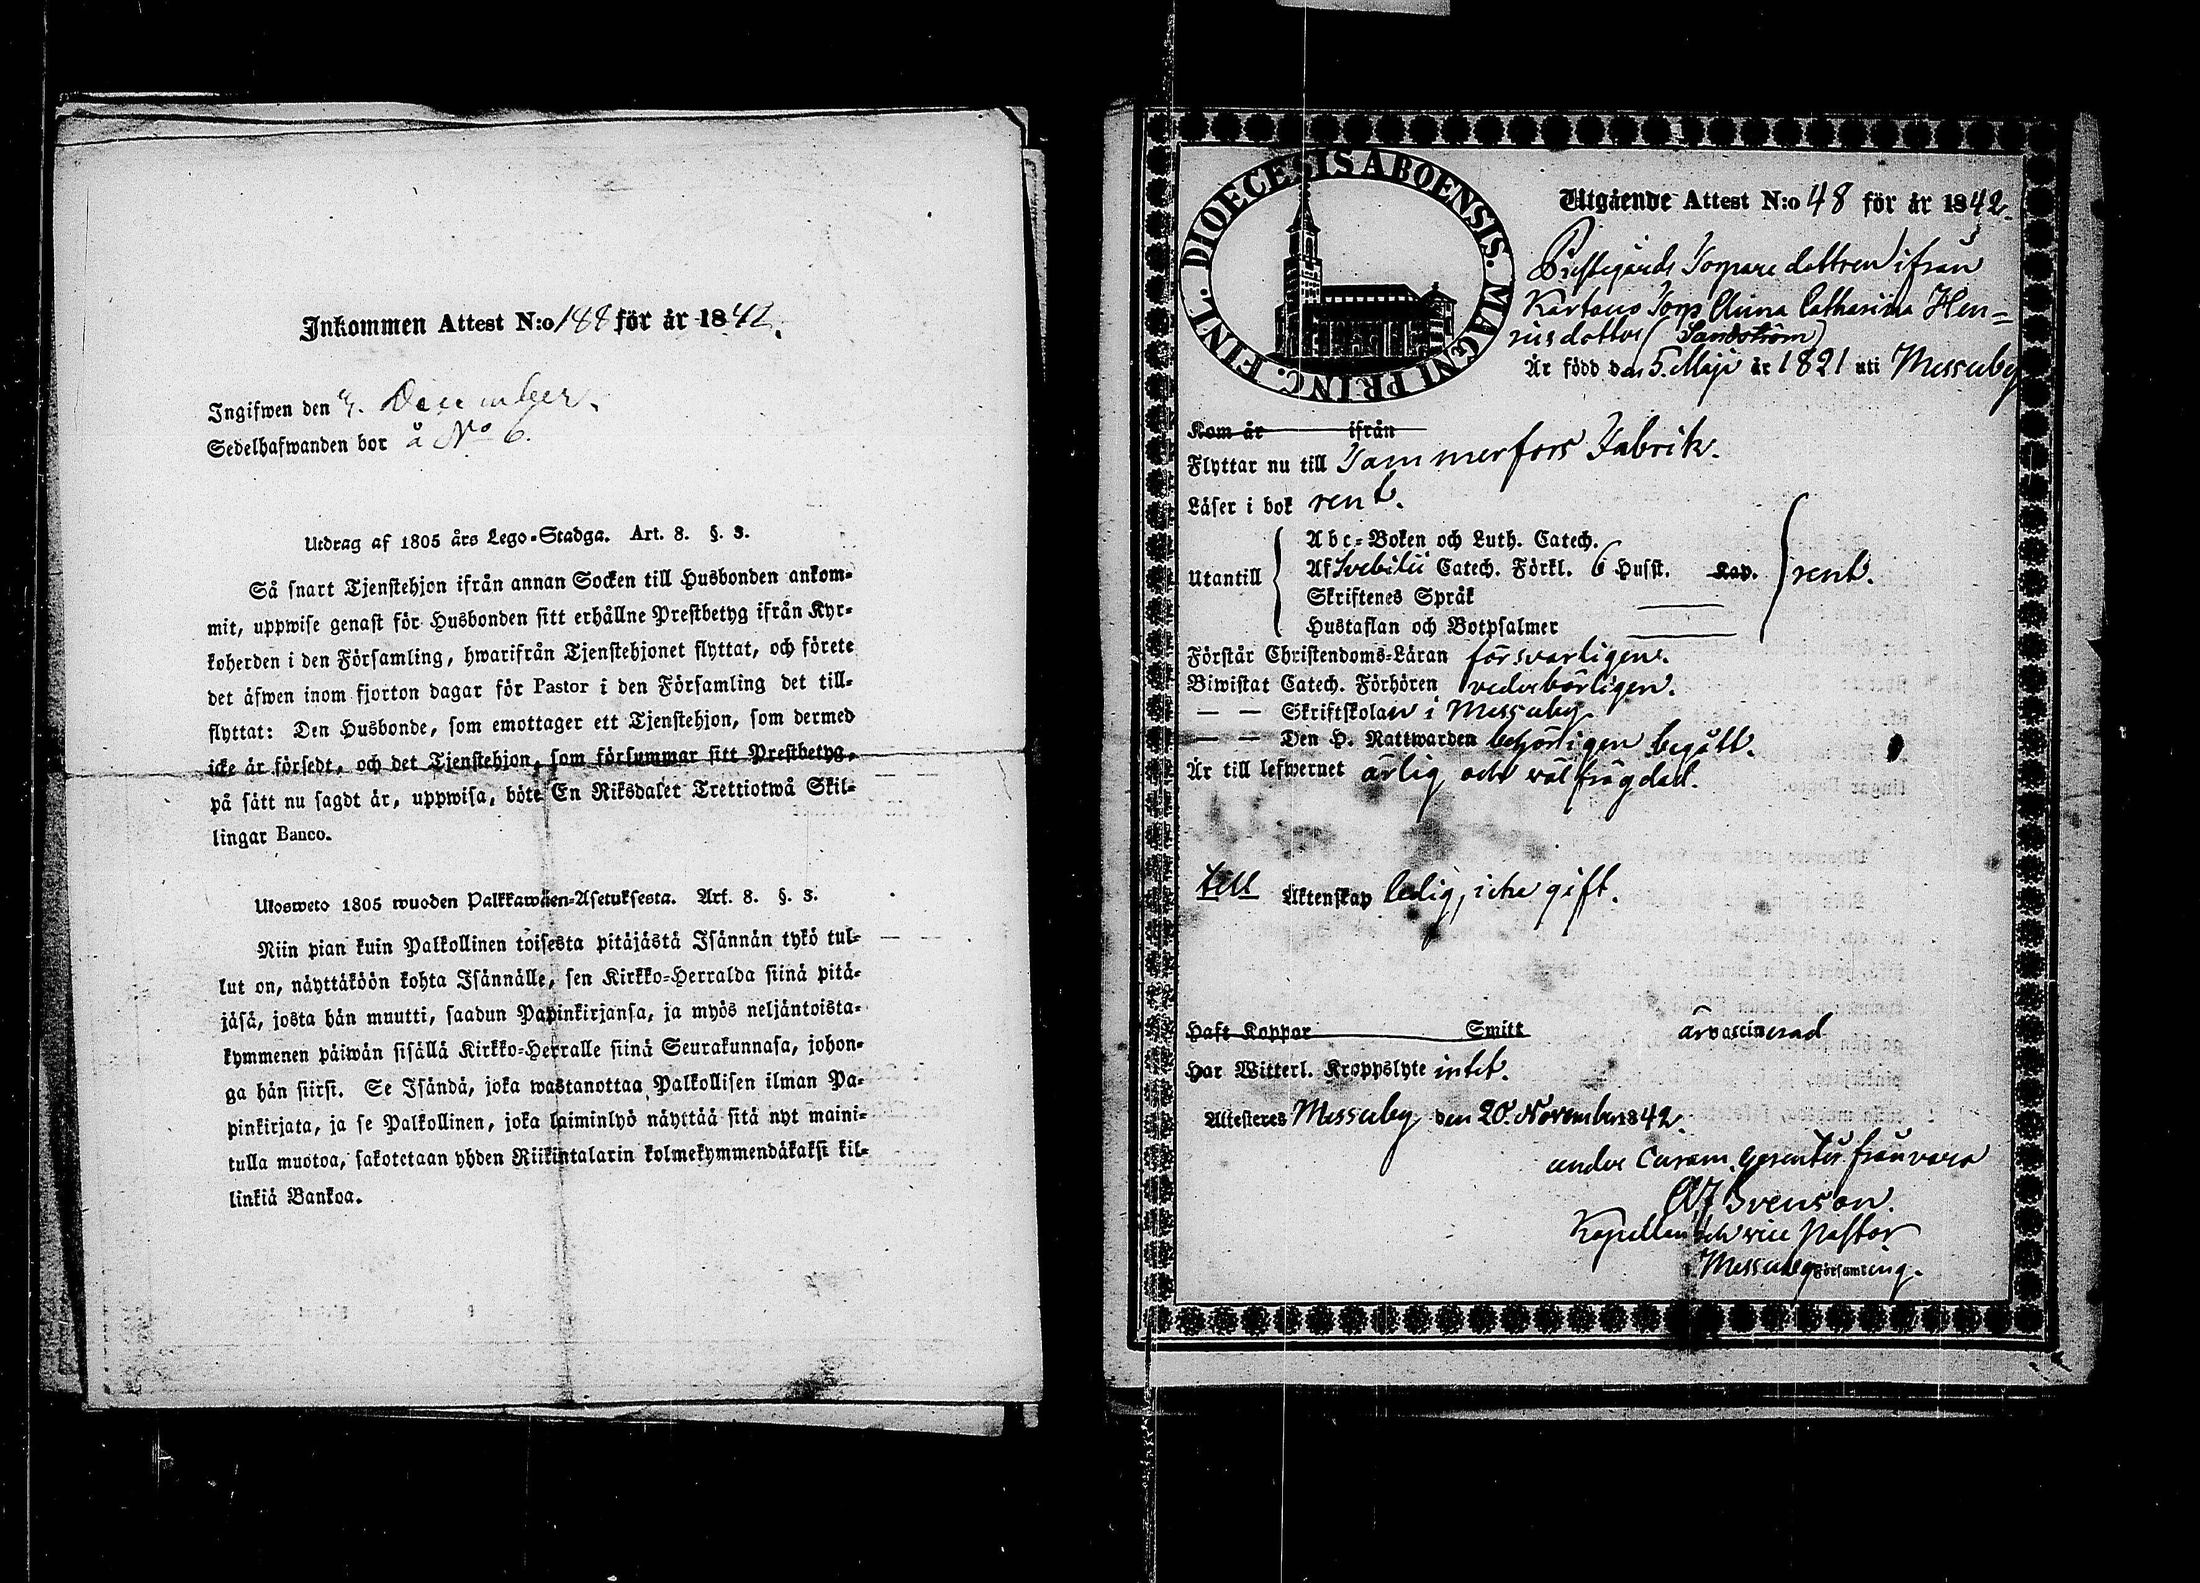 Inkommen Attest N:o 188 för år 1842.
Ingifwen den 4. December.
Sedelhafwanden bor å No 6.
Utdrag af 1805 års Lego-Stadga. Art. 8. §. 3.
Så snart Tjenstehjon ifrån annan Socken till Husbonden ankom-
mit, uppwise genast för Husbonden sitt erhållne Prestbetyg ifrån Kyr-
koherden i den Församling, hwarifrån Tjenstehjonet flyttat, och förete
det äfwen inom fjorton dagar för Pastor i den Församling det till-
flyttat: Den Husbonde, som emottager ett Tjenstehjon, som dermed
icke är försedt, och det Tjenstehjon, som försummar sitt Prestbetyg,
på sätt nu sagdt är, uppwisa, böte En Riksdaler Trettiotwå Skil-
lingar Banco.
Ulosweto 1805 wuoden Palkkawäen-Asetuksesta. Art. 8. §. 3.
Niin pian kuin Palkollinen toisesta pitäjästä Isännän tykö tul-
lut on, näyttäköön kohta Isännälle, sen Kirkko-Herralda siinä pitä-
jäsä, josta hän muutti, saadun Papinkirjansa, ja myös neljäntoista-
kymmenen päiwän sisällä Kirkko-Herralle siinä Seurakunnasa, johon-
ga hän siirsi. Se Isändä, joka wastanottaa Palkollisen ilman Pa-
pinkirjata, ja se Palkollinen, joka laiminlyö näyttää sitä nyt maini-
tulla muotoa, sakotetaan yhden Riikintalarin kolmekymmendäkaksi kil-
linkiä Bankoa.
DIOECESIS ABOENSIS. MAGNI PRINC. FINL.
Utgående Attest N:o 48 för år 1842.
Prestegårds Torpare dottren ifrån
Kartano Torp Anna Catharina Hen=
risdotter (Sandström)
Är född den 5. Maji år 1821 uti Messuby
Kom år ifrån
Flyttar nu till Tammerfors Fabrik.
Läser i bok rent.
Utantill
Abc-Boken och Luth. Catech.
Af Svebilii Catech. Förkl. 6 Hufst. Kap. rent.
Skriftenes Språk
Hustaflan och Botpsalmer
Förstår Christendoms-Läran försvarligen.
Biwistat Catech. Förhören vederbörligen.
— — Skriftskolan i Messuby
— — Den H. Nattwarden behörigen begått.
Är till lefwernet ärlig och välfrägdad.
till Äktenskap ledig, icke gift.
Haft Koppor Smitt är vaccinerad
Har Witterl. Kroppslyte intet.
Attesteres Messuby den 20. November 1842.
under Curam gerentis frånvaro
Svenson.
Kapellan och vice Pastor
Messuby Församling.